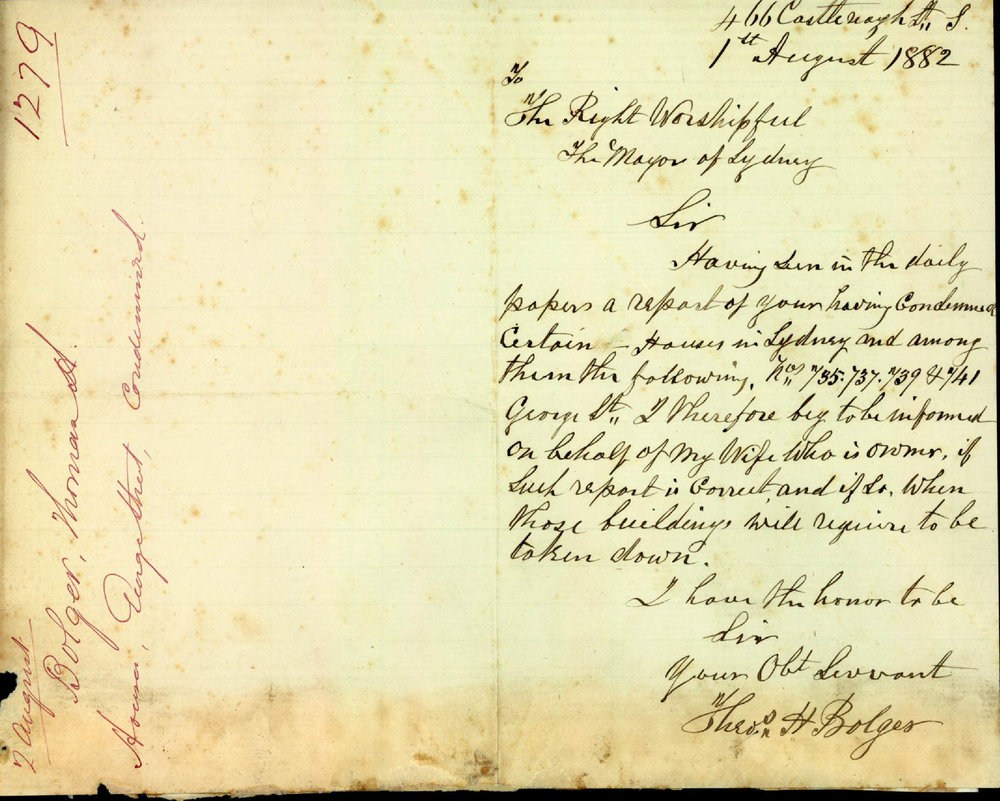 466 Castlereagh St,, S.
1st August 1882
To
The Right Worshipful
The Mayor of Sydney
Sir
Having seen in the daily
papers a report of your having Condemned
Certain – Houses in Sydney and among
them the following, Nos,, 735. 737. 739 & 741
George St,, I therefore beg to be informed
on behalf of My Wife Who is owner, if
Such report is Correct, and if So, When
those buildings will require to be
taken down.
I have the honor to be
Sir
Your Obt Servant
H Bolger
1279
2 August
Bolger, Thomas H.
Houses, George Street, Condemned